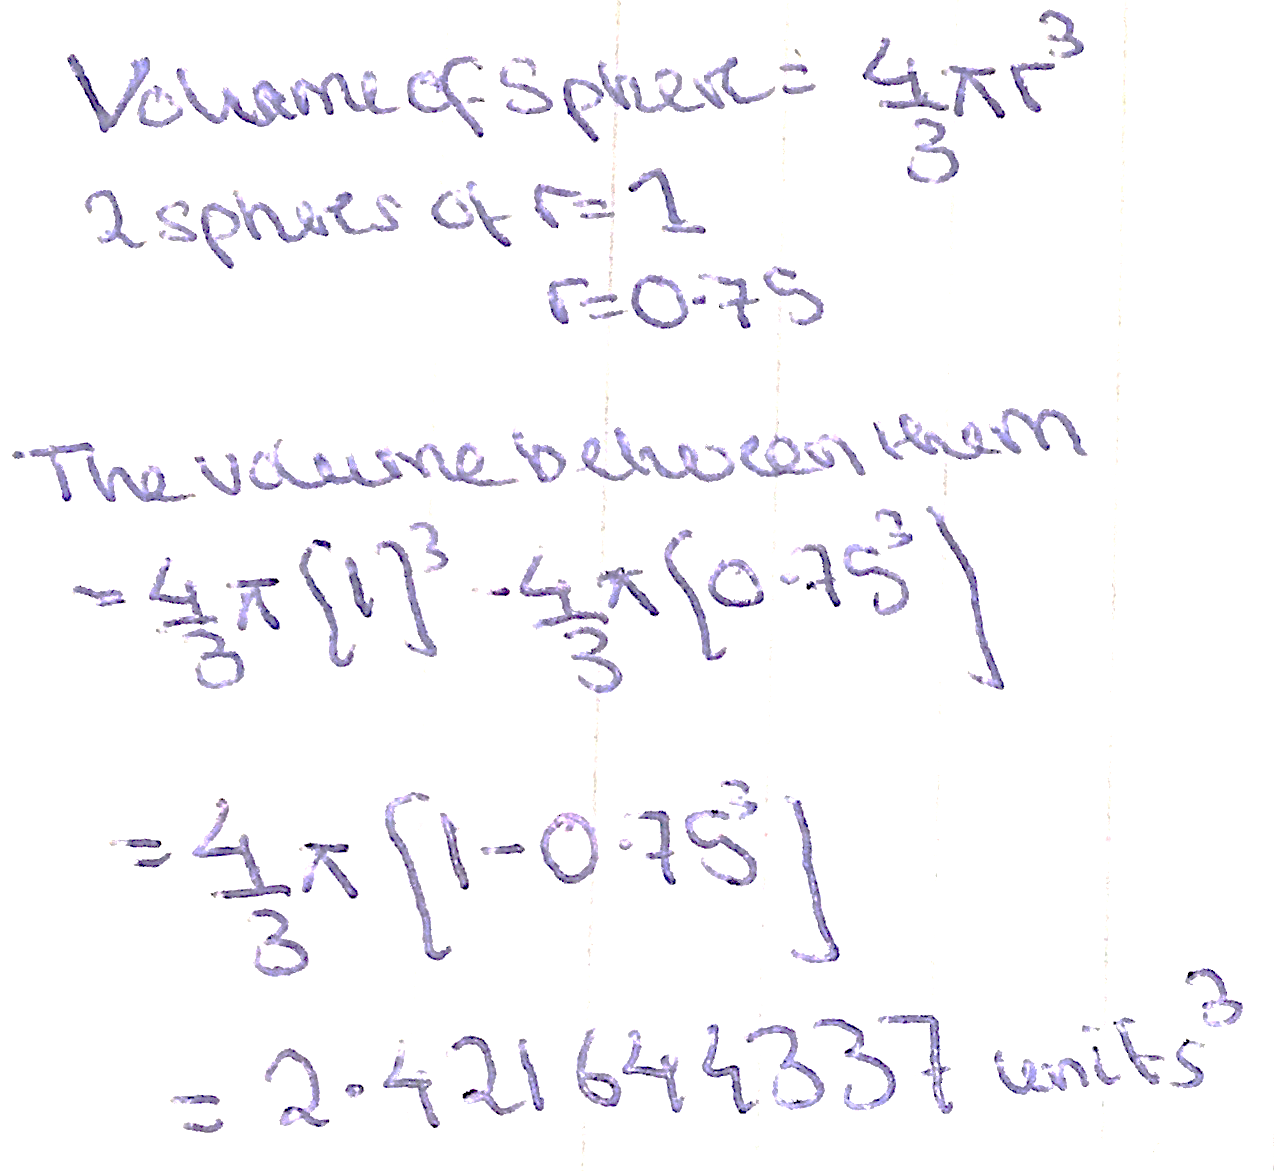 Volume of Sphere = 4/3 πr³
2 spheres of r=1
r=0.75
The volume between them
= 4/3 π[1]³ - 4/3 π[0.75³]
= 4/3 π[1-0.75³]
= 2.421644337 units³